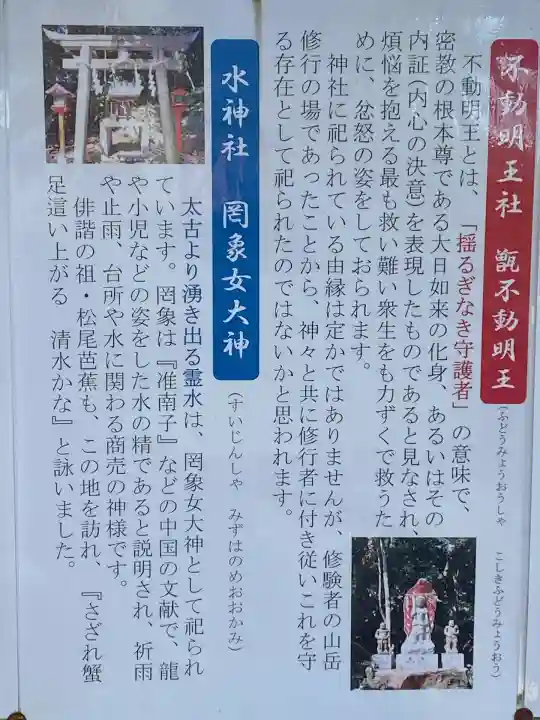 不動明王社　甑不動明王
（ふどうみょうおうしゃ　こしきふどうみょうおう）
不動明王とは、「揺るぎなき守護者」の意味で、
密教の根本尊である大日如来の化身、あるいはその
内証（内心の決意）を表現したものであると見なされ、
煩悩を抱える最も救い難い衆生をも力ずくで救うた
めに、忿怒の姿をしておられます。
神社に祀られている由縁は定かではありませんが、修験者の山岳
修行の場であったことから、神々と共に修行者に付き従いこれを守
る存在として祀られたのではないかと思われます。
水神社　罔象女大神
（すいじんしゃ　みずはのめおおかみ）
太古より湧き出る霊水は、罔象女大神として祀られ
ています。罔象は『准南子』などの中国の文献で、龍
や小児などの姿をした水の精であると説明され、祈雨
や止雨、台所や水に関わる商売の神様です。
俳諧の祖・松尾芭蕉も、この地を訪れ、『さざれ蟹
足這い上がる　清水かな』と詠いました。